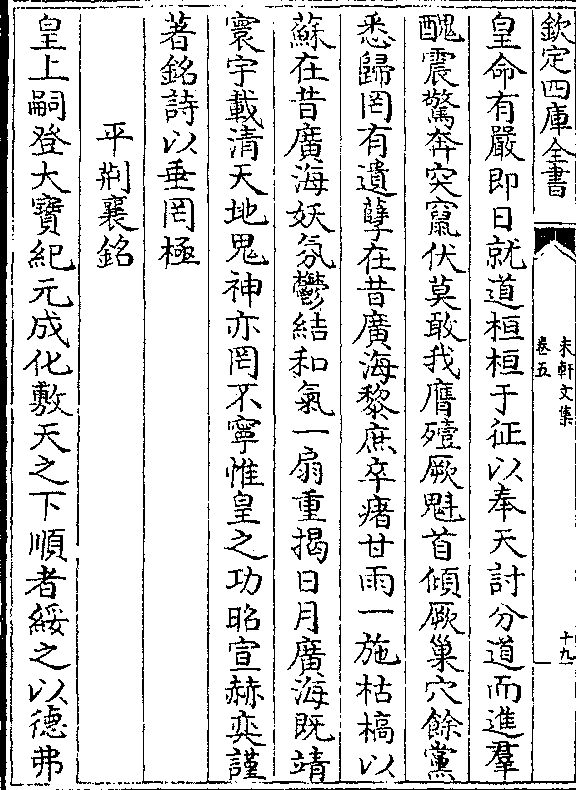 欽定四庫全書
未軒文集
卷五
十九
皇命有嚴即日就道桓桓于征以奉天討分道而進羣
醜震驚奔突竄伏莫敢我膺殪厥魁首傾厥巢穴餘黨
悉歸罔有遺孽在昔廣海黎庶卒瘏甘雨一施枯槁以
蘇在昔廣海妖氛鬱結和氣一扇重揭日月廣海既靖
寰宇載清天地鬼神亦罔不寧惟皇之功昭宣赫奕謹
著銘詩以垂罔極
平荆襄銘
皇上嗣登大寶紀元成化敷天之下順者綏之以德弗